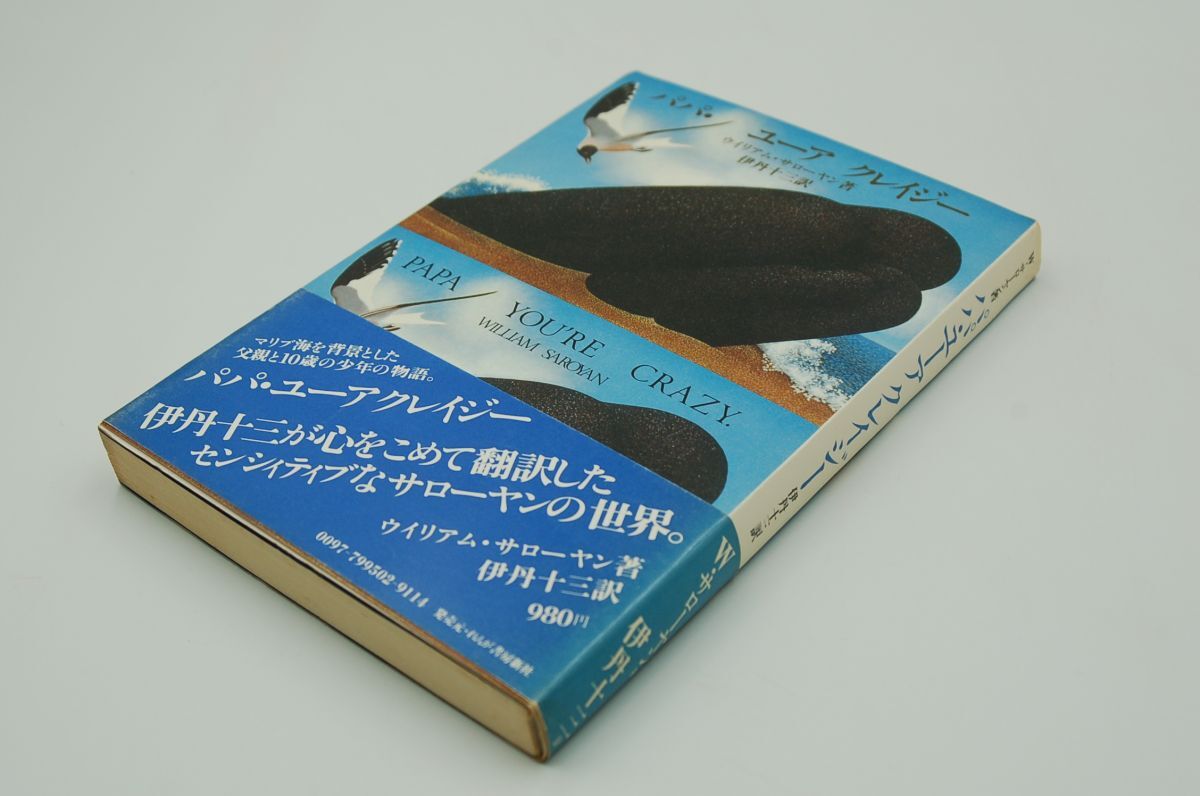 パパ・ユーア クレイジー
ウイリアム・サローヤン著
伊丹十三訳
PAPA YOU'RE CRAZY.
WILLIAM SAROYAN
マリブ海を背景とした
父親と10歳の少年の物語。
パパ・ユーア クレイジー
伊丹十三が心をこめて翻訳した
センシィティブなサローヤンの世界。
ウイリアム・サローヤン著
伊丹十三訳
980円
0097-799502-9114 発売元・れんが書房新社
W・サローヤン著 パパ・ユーア クレイジー 伊丹十三訳
W・サローヤン
伊丹十三